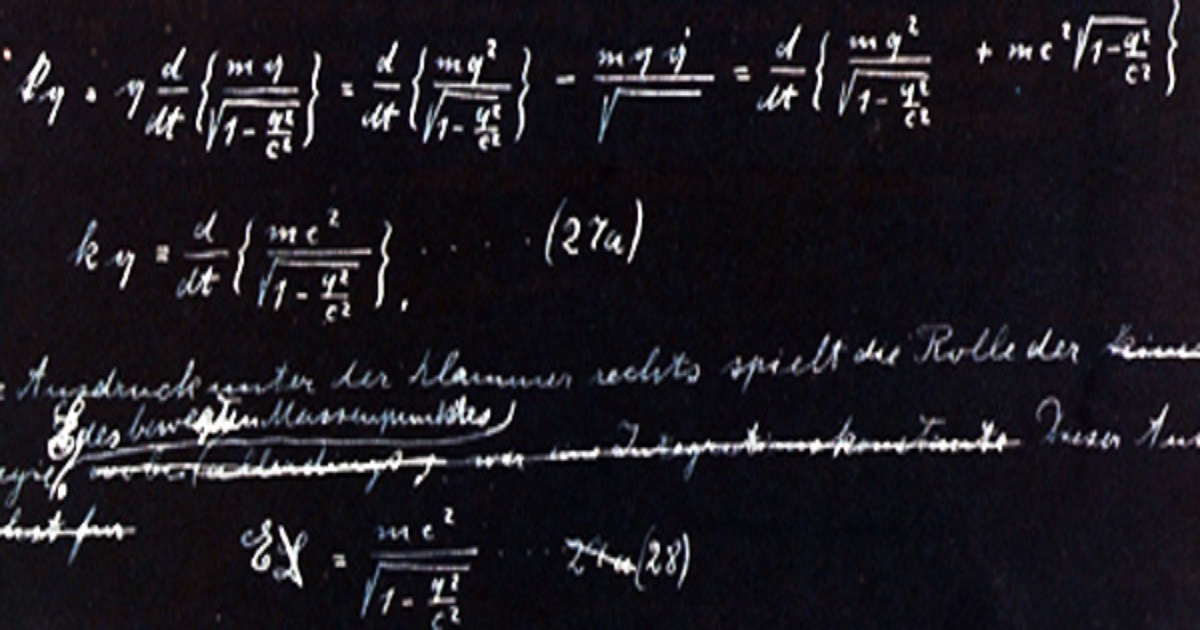 k q = q d/dt { m q / √(1 - q²/c²) } = d/dt { m q² / √(1 - q²/c²) } - m q q̇ / √ = d/dt { m q² / √(1 - q²/c²) + m c² √(1 - q²/c²) }
k q = d/dt { m c² / √(1 - q²/c²) }, ..... (27a)
Ausdruck unter der Klammer rechts spielt die Rolle der
E des bewegten Massenpunktes
Integrationskonstante Dieser
E = m c² / √(1 - q²/c²) .... (28)